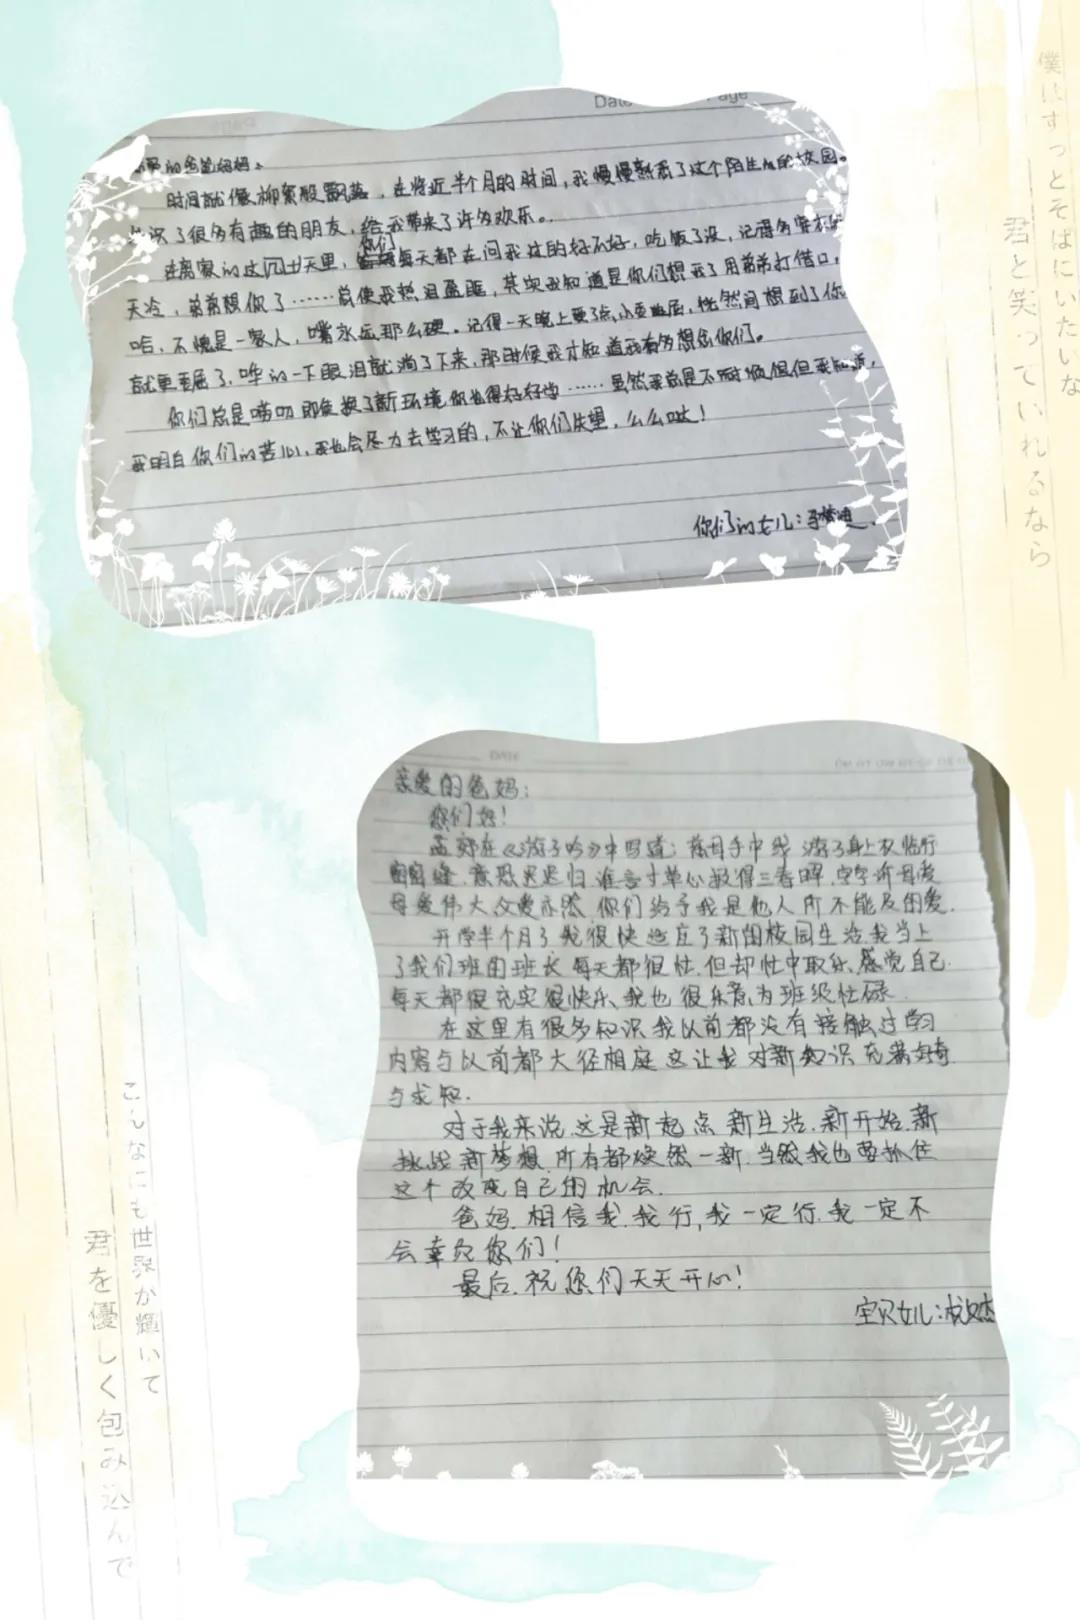 Date
Page
的爸爸妈妈。
时间就像柳絮般飘落，在将近半个月的时间，我慢慢熟悉了这个陌生的校园。
识了很多有趣的朋友，给我带来了许多欢乐。
在离家的这十天里，你们每天都在问我过的好不好，吃饭了没，记得多穿衣
天冷，弟弟想你了……总使我热泪盈眶，其实我知道是你们想我了用弟弟打借口，
哈，不愧是一家人，嘴永远那么硬。记得一天晚上受了点小委屈后，恍然间想到了你
就更委屈了，哗的一下眼泪就淌了下来，那时候我才知道我有多想念你们。
你们总是唠叨即使换了新环境你也得好好学……虽然我总是不耐烦但但我知道，
我明白你们的苦心，我也会尽力去学习的，不让你们失望，么么哒！
你们的女儿：
亲爱的爸妈：
您们好！
孟郊在《游子吟》中写道：慈母手中线 游子身上衣 临行
密密缝，意恐迟迟归 谁言寸草心 报得三春晖，字字诉母爱
母爱伟大父爱亦然 你们给予我是他人所不能及的爱.
开学半个月了 我很快适应了新的校园生活.我当上
了我们班的班长 每天都很忙.但却忙中取乐.感觉自己
每天都很充实很快乐、我也很乐意为班级忙碌.
在这里有很多知识 我以前都没有接触过学习
内容与以前都大径相庭 这让我对新知识充满好奇
与求知.
对于我来说.这是新起点 新生活.新开始.新
挑战 新梦想.所有都焕然一新.当然我也要抓住
这个改变自己的机会.
爸妈.相信我.我行，我一定行.我一定不
会辜负您们！
最后.祝您们天天开心！
宝贝女儿：
僕はずっとそばにいたいな
君と笑っていれるなら
こんなにも世界が輝いて
君を優しく包み込んで